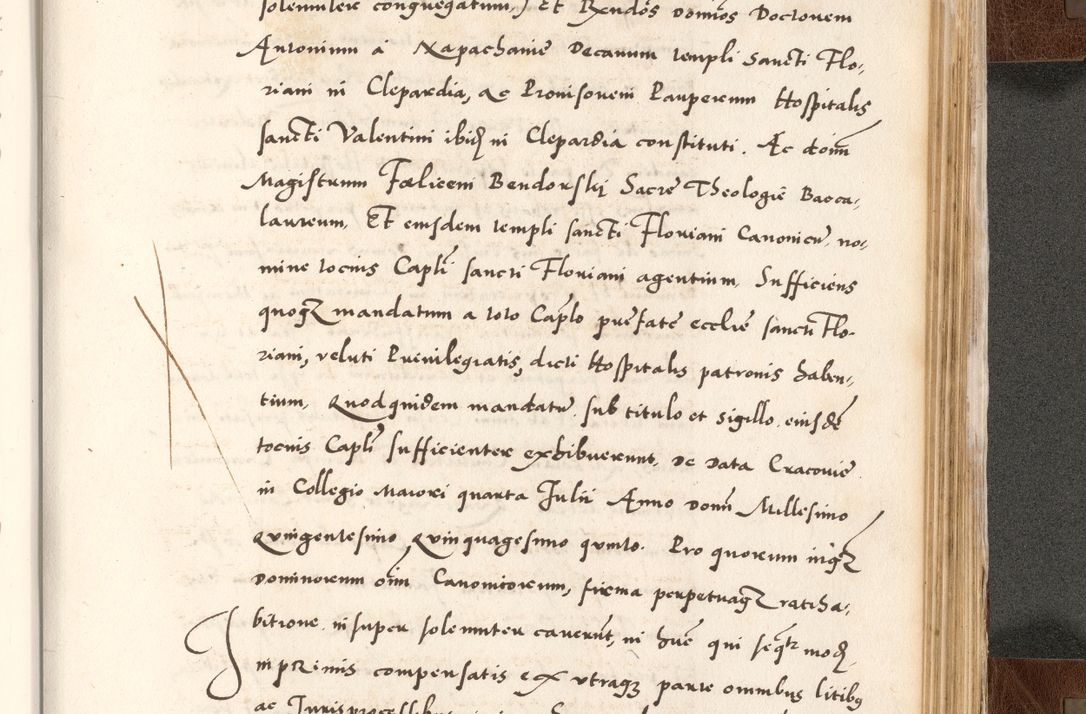 solenniter congregatum,) Et R̃endos dominos Doctorem
Antonium à Napachanie Decanum templi Sancti Flo-
riani in Clepardia, ac Provisorem Pauperum Hospitalis
sancti Valentini ibid in Clepardia constituti. Ac dom̃
Magistrum Fœlicem Bendorski Sacre Theologie Bacca-
laureum, Et eiusdem templi sancti Floriani Canonicũ, no-
mine tocius Capli sancti Floriani agentium, Sufficiens
quoqз mandatum a toto Caplo prefate ecclie sancti Flo-
riani, veluti Privilegiatis, dicti Hospitalis patronis haben-
tium, Quodquidem mandatũ sub titulo et sigillo eiusdẽ
tocius Capli sufficienter exhibuerunt, De Data Cracovie
in Collegio Maiori quarta Julii Anno domi Millesimo
quingentesimo quinquagesimo quinto. Pro quorum
dominorum oim Canonicorum, firma perpetuaqз ratiha-
bitione insuper solenniter caverũt, in hũc qui seqtr mod
Inprimis compensatis ex utraqз parte omnibus litibus
ac Jurisprocessibus